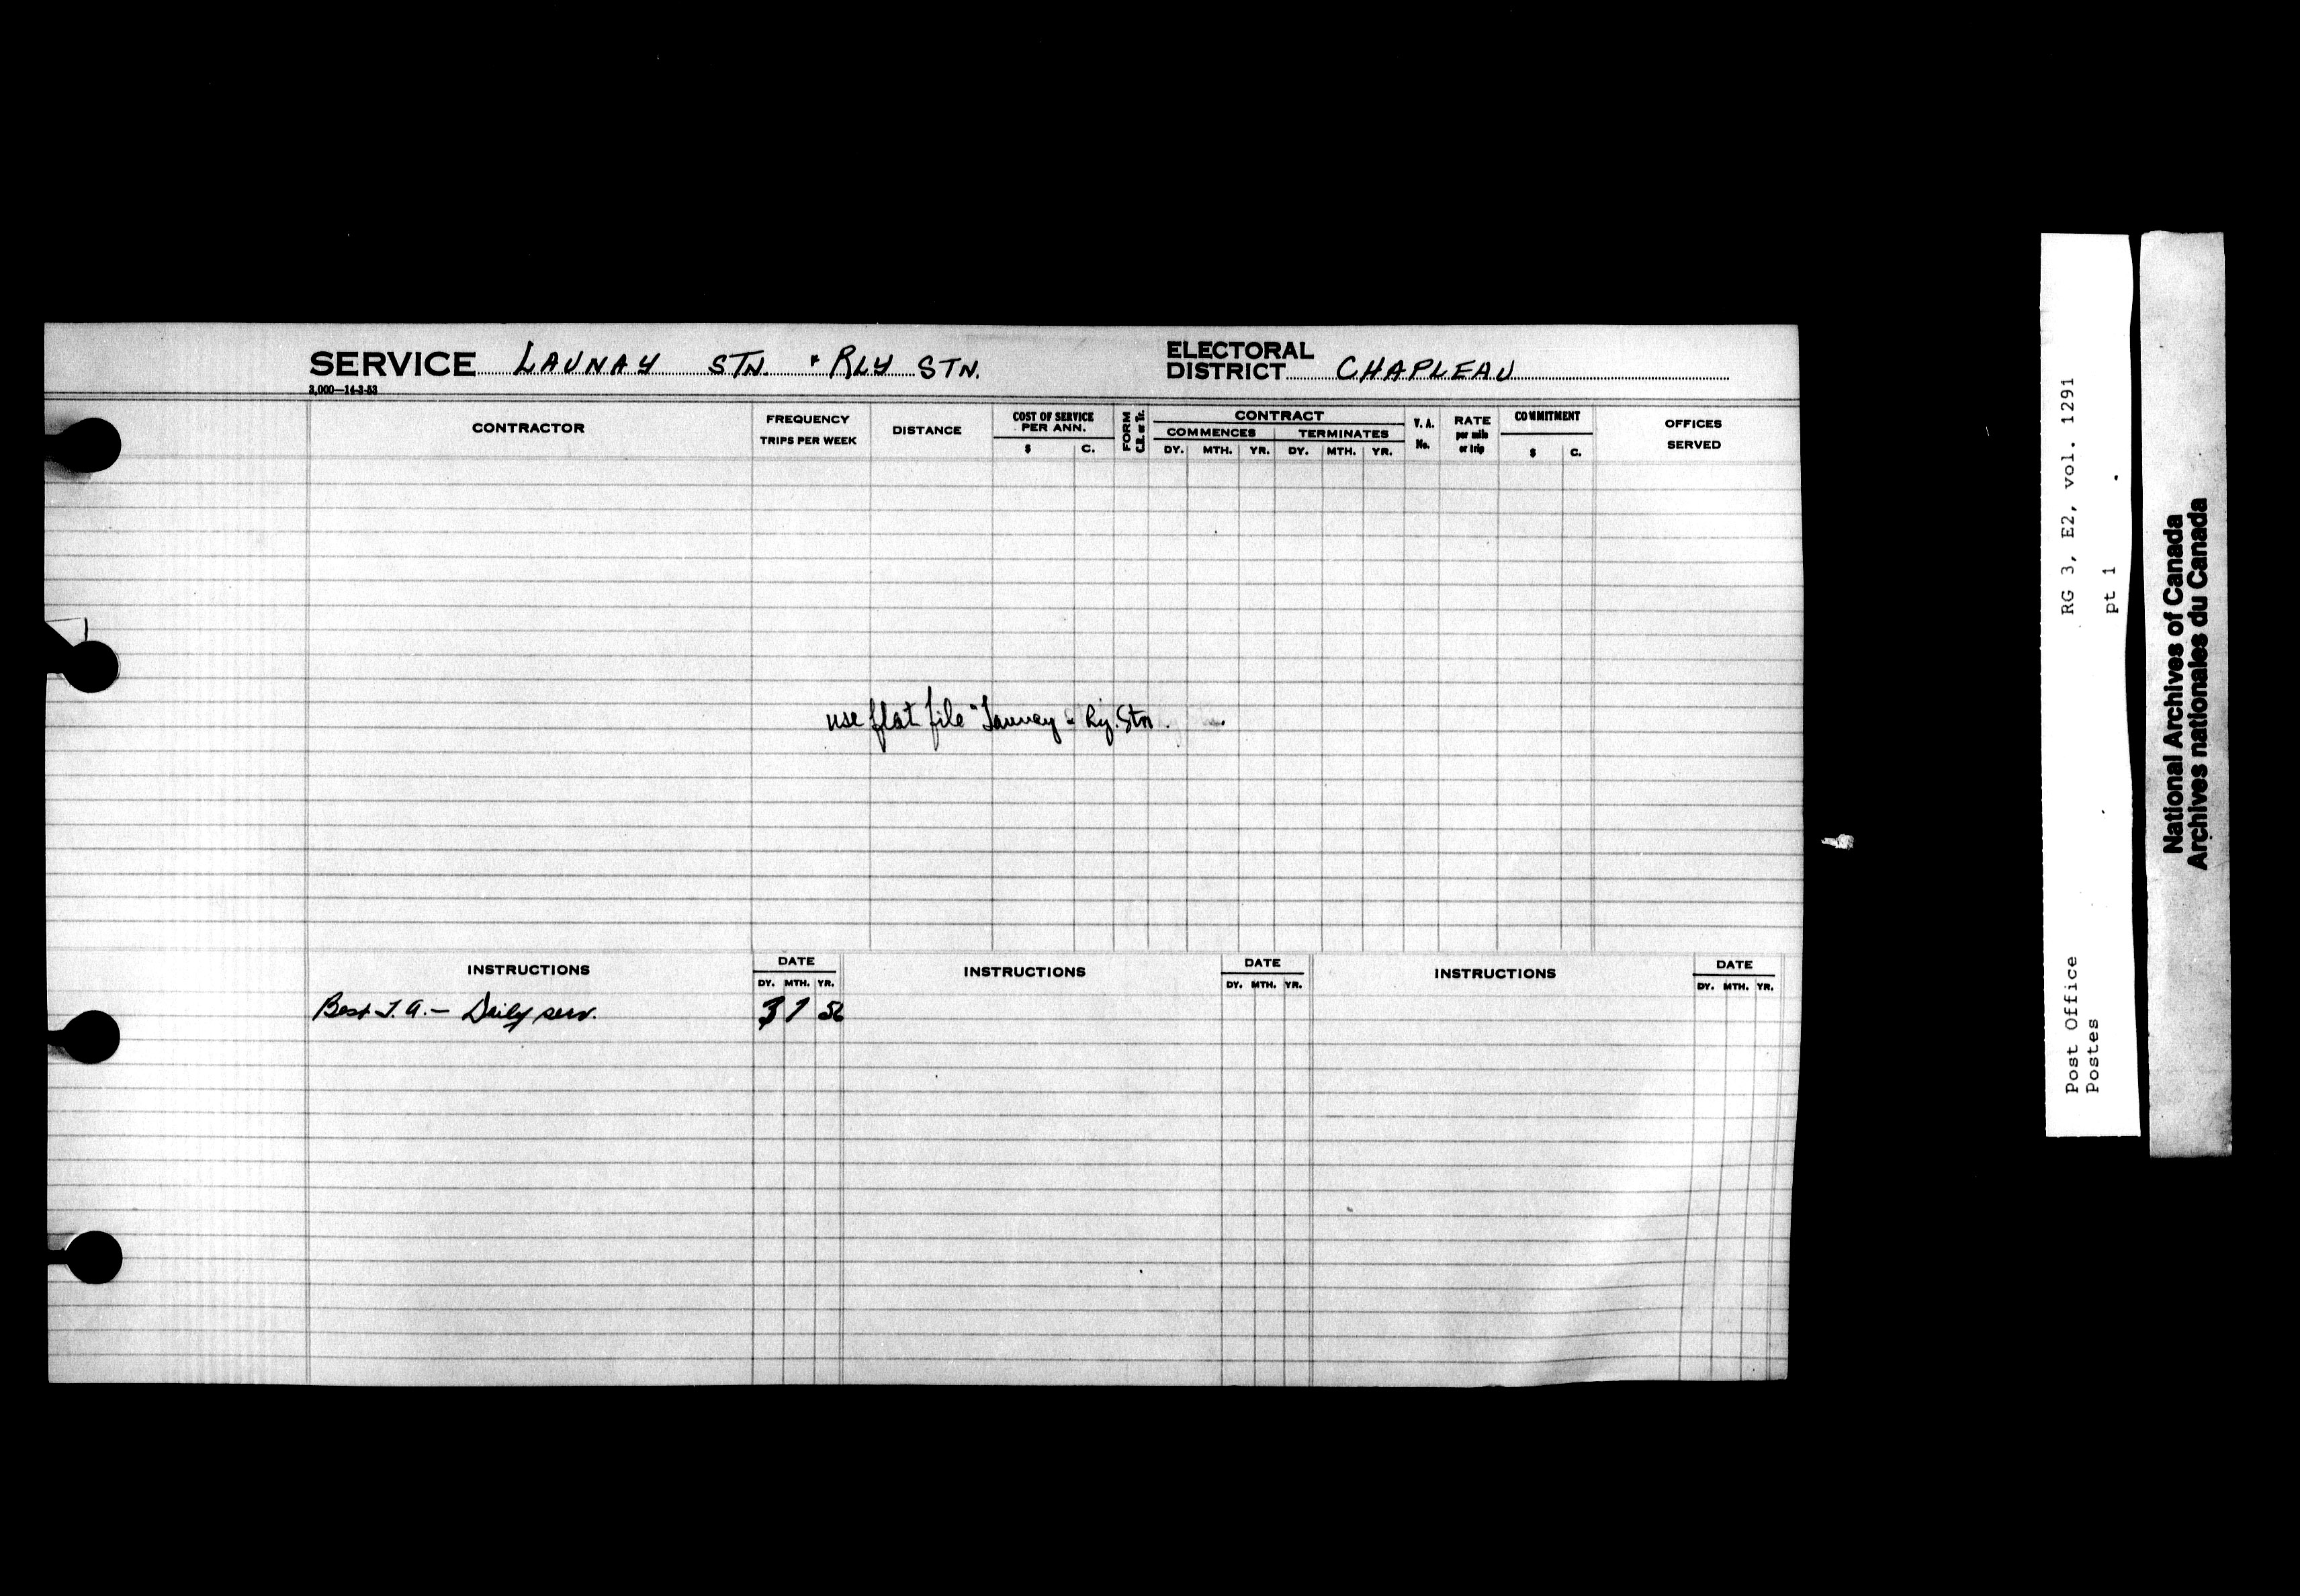 SERVICE LAUNAY STN. & RLY STN.
ELECTORAL DISTRICT CHAPLEAU
3,000—14-3-53
CONTRACTOR
FREQUENCY
TRIPS PER WEEK
DISTANCE
COST OF SERVICE
PER ANN.
$ C.
FORM
CONTRACT
COMMENCES TERMINATES
DY. MTH. YR. DY. MTH. YR.
V. A.
No.
RATE
per mile
or trip
COMMITMENT
$ C.
OFFICES
SERVED
use flat file "Launay - Ry. Stn.
INSTRUCTIONS DATE INSTRUCTIONS DATE INSTRUCTIONS DATE
DY. MTH. YR. DY. MTH. YR. DY. MTH. YR.
Best T.A. — Daily serv. 3 1 56
RG 3, E2, vol. 1291
pt 1
Post Office
Postes
National Archives of Canada
Archives nationales du Canada